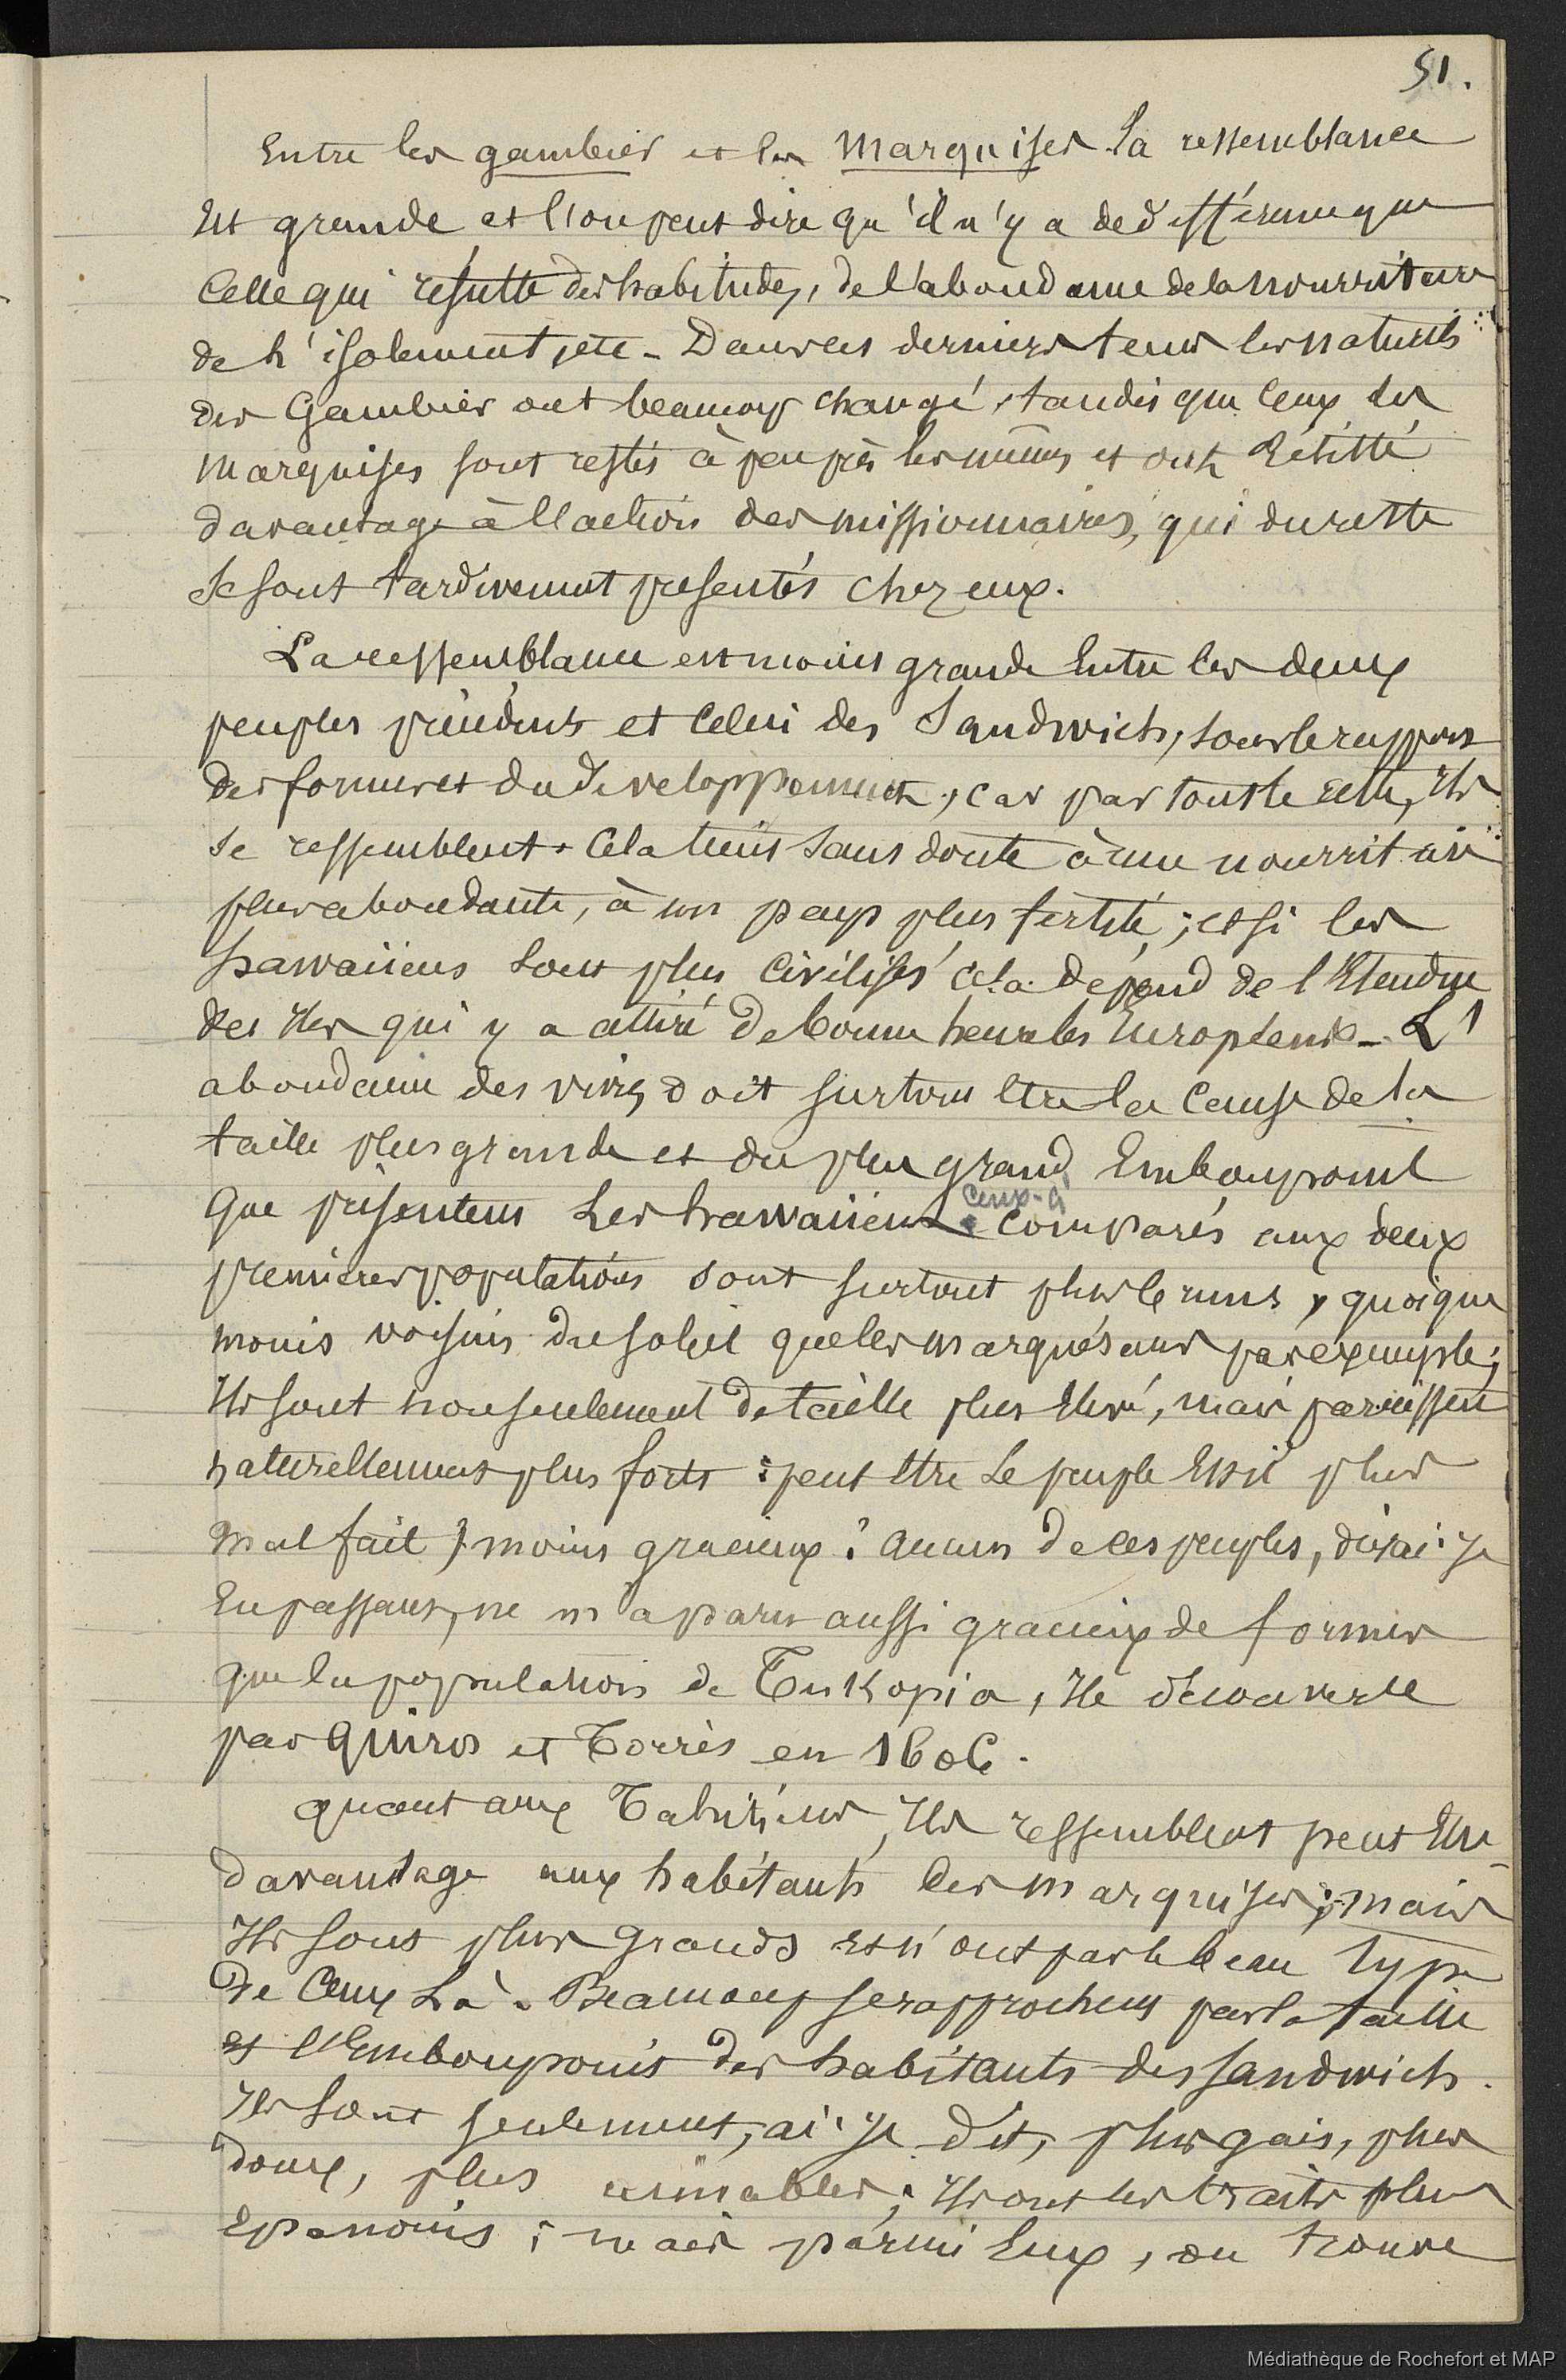 51.
Entre les gambier et les Marquises la ressemblance
est grande et l'on peut dire qu'il n'y a de différence que
Celle qui résulte des habitudes, de l'abondance de la nourriture
de l'isolement, etc - Dans ces derniers tems les naturels
des Gambier ont beaucoup changé, tandis que ceux des
marquises sont restés à peu près les mêmes et ont résisté
davantage à l'action des missionnaires, qui du reste
se sont tardivement présentés chez eux.
La ressemblance est moins grande entre les deux
peuples précédents et celui des Sandwich, sous le rapport
des formes et du développement, car par tout le reste, ils
se ressemblent. Cela tient sans doute à une nourriture
plus abondante, à un pays plus fertile; et si les
hawaiiens sont plus civilisés cela dépend de l'étendue
des Iles qui y a attiré de bonne heure les Européens - L'
abondance des vivres doit surtout être la cause de la
taille plus grande et du plus grand Embonpoint
que présentent les hawaiiens. ceux-ci comparés aux deux
premières populations sont surtout plus bruns, quoique
moins voisins du soleil que les marquésans par exemple;
Ils sont non seulement de taille plus élevé, mais paraissent
naturellement plus forts: peut être le peuple est il plus
mal fait, moins gracieux: aucun de ces peuples, dirai-je
en passant, ne m'a paru aussi gracieux de formes
que la population de Tukopia, Ile découverte
par Quiros et Torrès en 1606.
quant aux Tahitiens, Ils ressemblent peut être
davantage aux habitants des marquises; mais
Ils sont plus grands et n'ont pas le beau type
de Ceux là. Beaucoup se rapprochent par la taille
et l'Embonpoint des habitants des Sandwich.
Ils sont seulement, ai-je dit, plus gais, plus
doux, plus aimables; Ils ont les traits plus
épanouis; mais parmi Eux, on trouve
Médiathèque de Rochefort et MAP